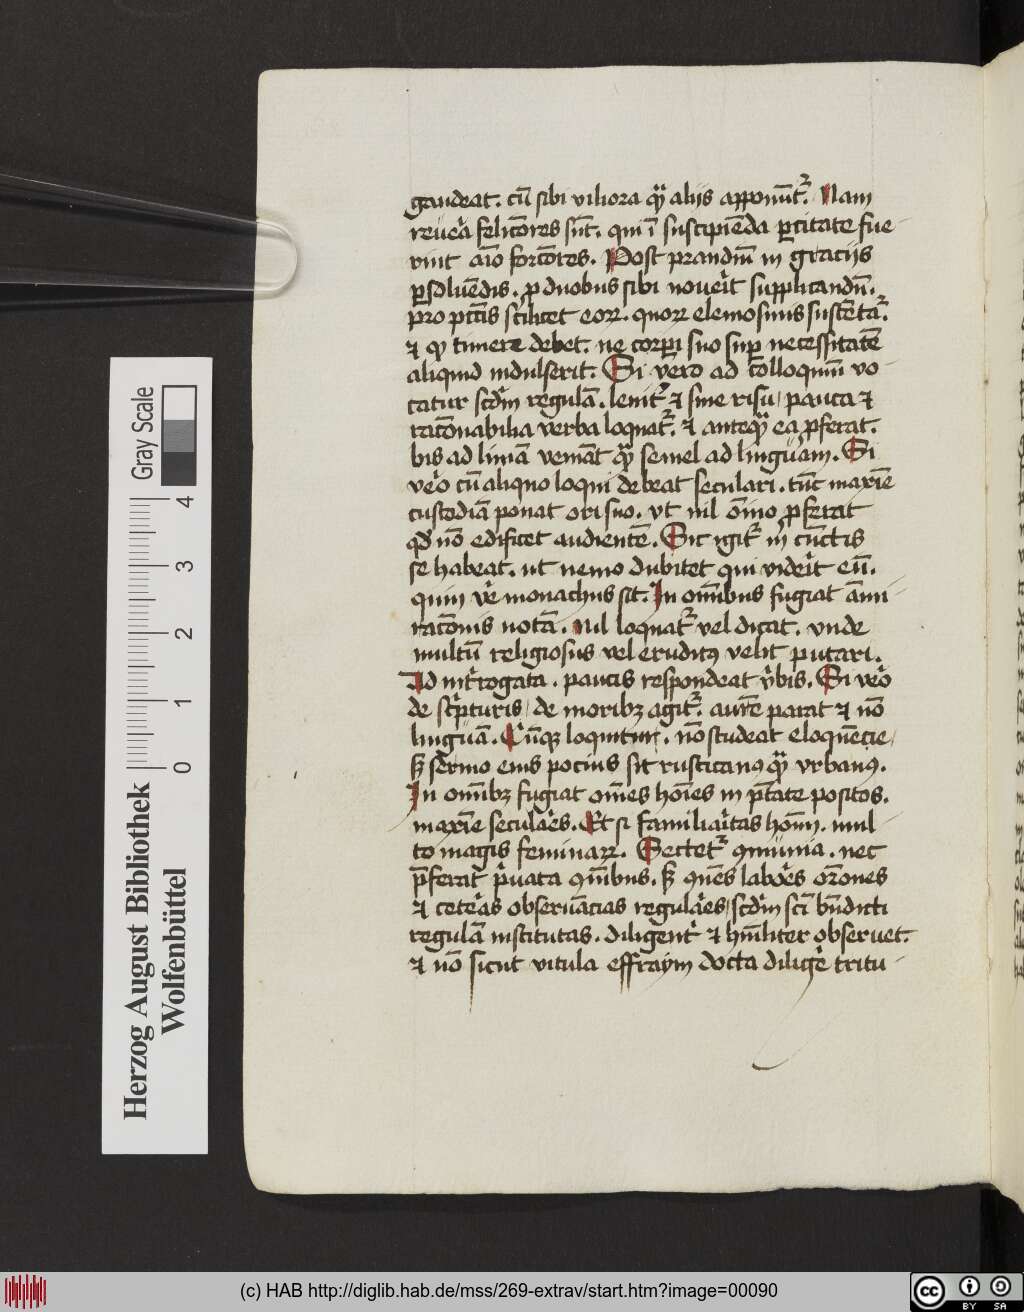 gaudeat. cū sibi viliora qͣ̄ alijs apponūtᷣ. Nam
reuēa feliciores sūt. qui ī suscipiēda p̱citate fue-
rint aīo forciores. Post prandiū in gracijs
p̱soluēdis. ꝓ duobus sibi nouerit supplicandū.
pro pctīs scilicet eoꝝ. quoꝝ elemosinis sustētatᷣ.
⁊ qꝫ timere debet. ne corpori suo sup̱ necessitatē
aliquid indulserit. Si vero ad colloquiū vo-
catur scdm̄ regulā. lenitᷣ ⁊ sine risu / pauca ⁊
racōnabilia verba loquatᷣ. ⁊ anteqͣ̄ ea ꝓferat.
bis ad limā veniāt qͣ̄ semel ad linguam. Si
vero cū aliquo loqui debeat seculari. tūc maxīe
custodiā ponat ori suo. vt nil ōīno ꝓferat
qđ nō edificet audientē. Sic igitᷣ in cūctis
se habeat. ut nemo dubitet qui viderit eū.
quin v̄e monachus sit. In om̄ibus fugiat ām̄i-
racōnis notā. Nil loquatᷣ vel dicat. vnde
multū religiosus vel eruditꝰ velit putari.
Ad int̄rogata. paucis respondeat v̄bis. Si vēo
de scpturis / de moribꝫ agitᷣ. aurē parat ⁊ nō
linguā. Cūqꝫ loquitur. nō studeat eloquēcie /
sꝫ sermo eius pocius sit rusticanꝰ qͣ̄ vrbanꝰ.
In om̄ibꝫ fugiat om̄es hoīes in ptāte positos.
maxīe seculāes. Et si familiaritas hoīm. mul-
to magis feminaꝝ. Sectetᷣ ꝯmunia. nec
p̄ferat p̱uata ꝯmūibus. sꝫ ꝯmūes labores orōnes
⁊ cetēas obseruācias regulāes / scdm̄ scī bn̄dicti
regulā institutas. diligentᷣ ⁊ hūiliter obseruet.
⁊ nō sicut vitula effraym docta diligē tritu-
Herzog August Bibliothek
Wolfenbüttel
0 1 2 3 4
Gray Scale
(c) HAB http://diglib.hab.de/mss/269-extrav/start.htm?image=00090
cc BY SA